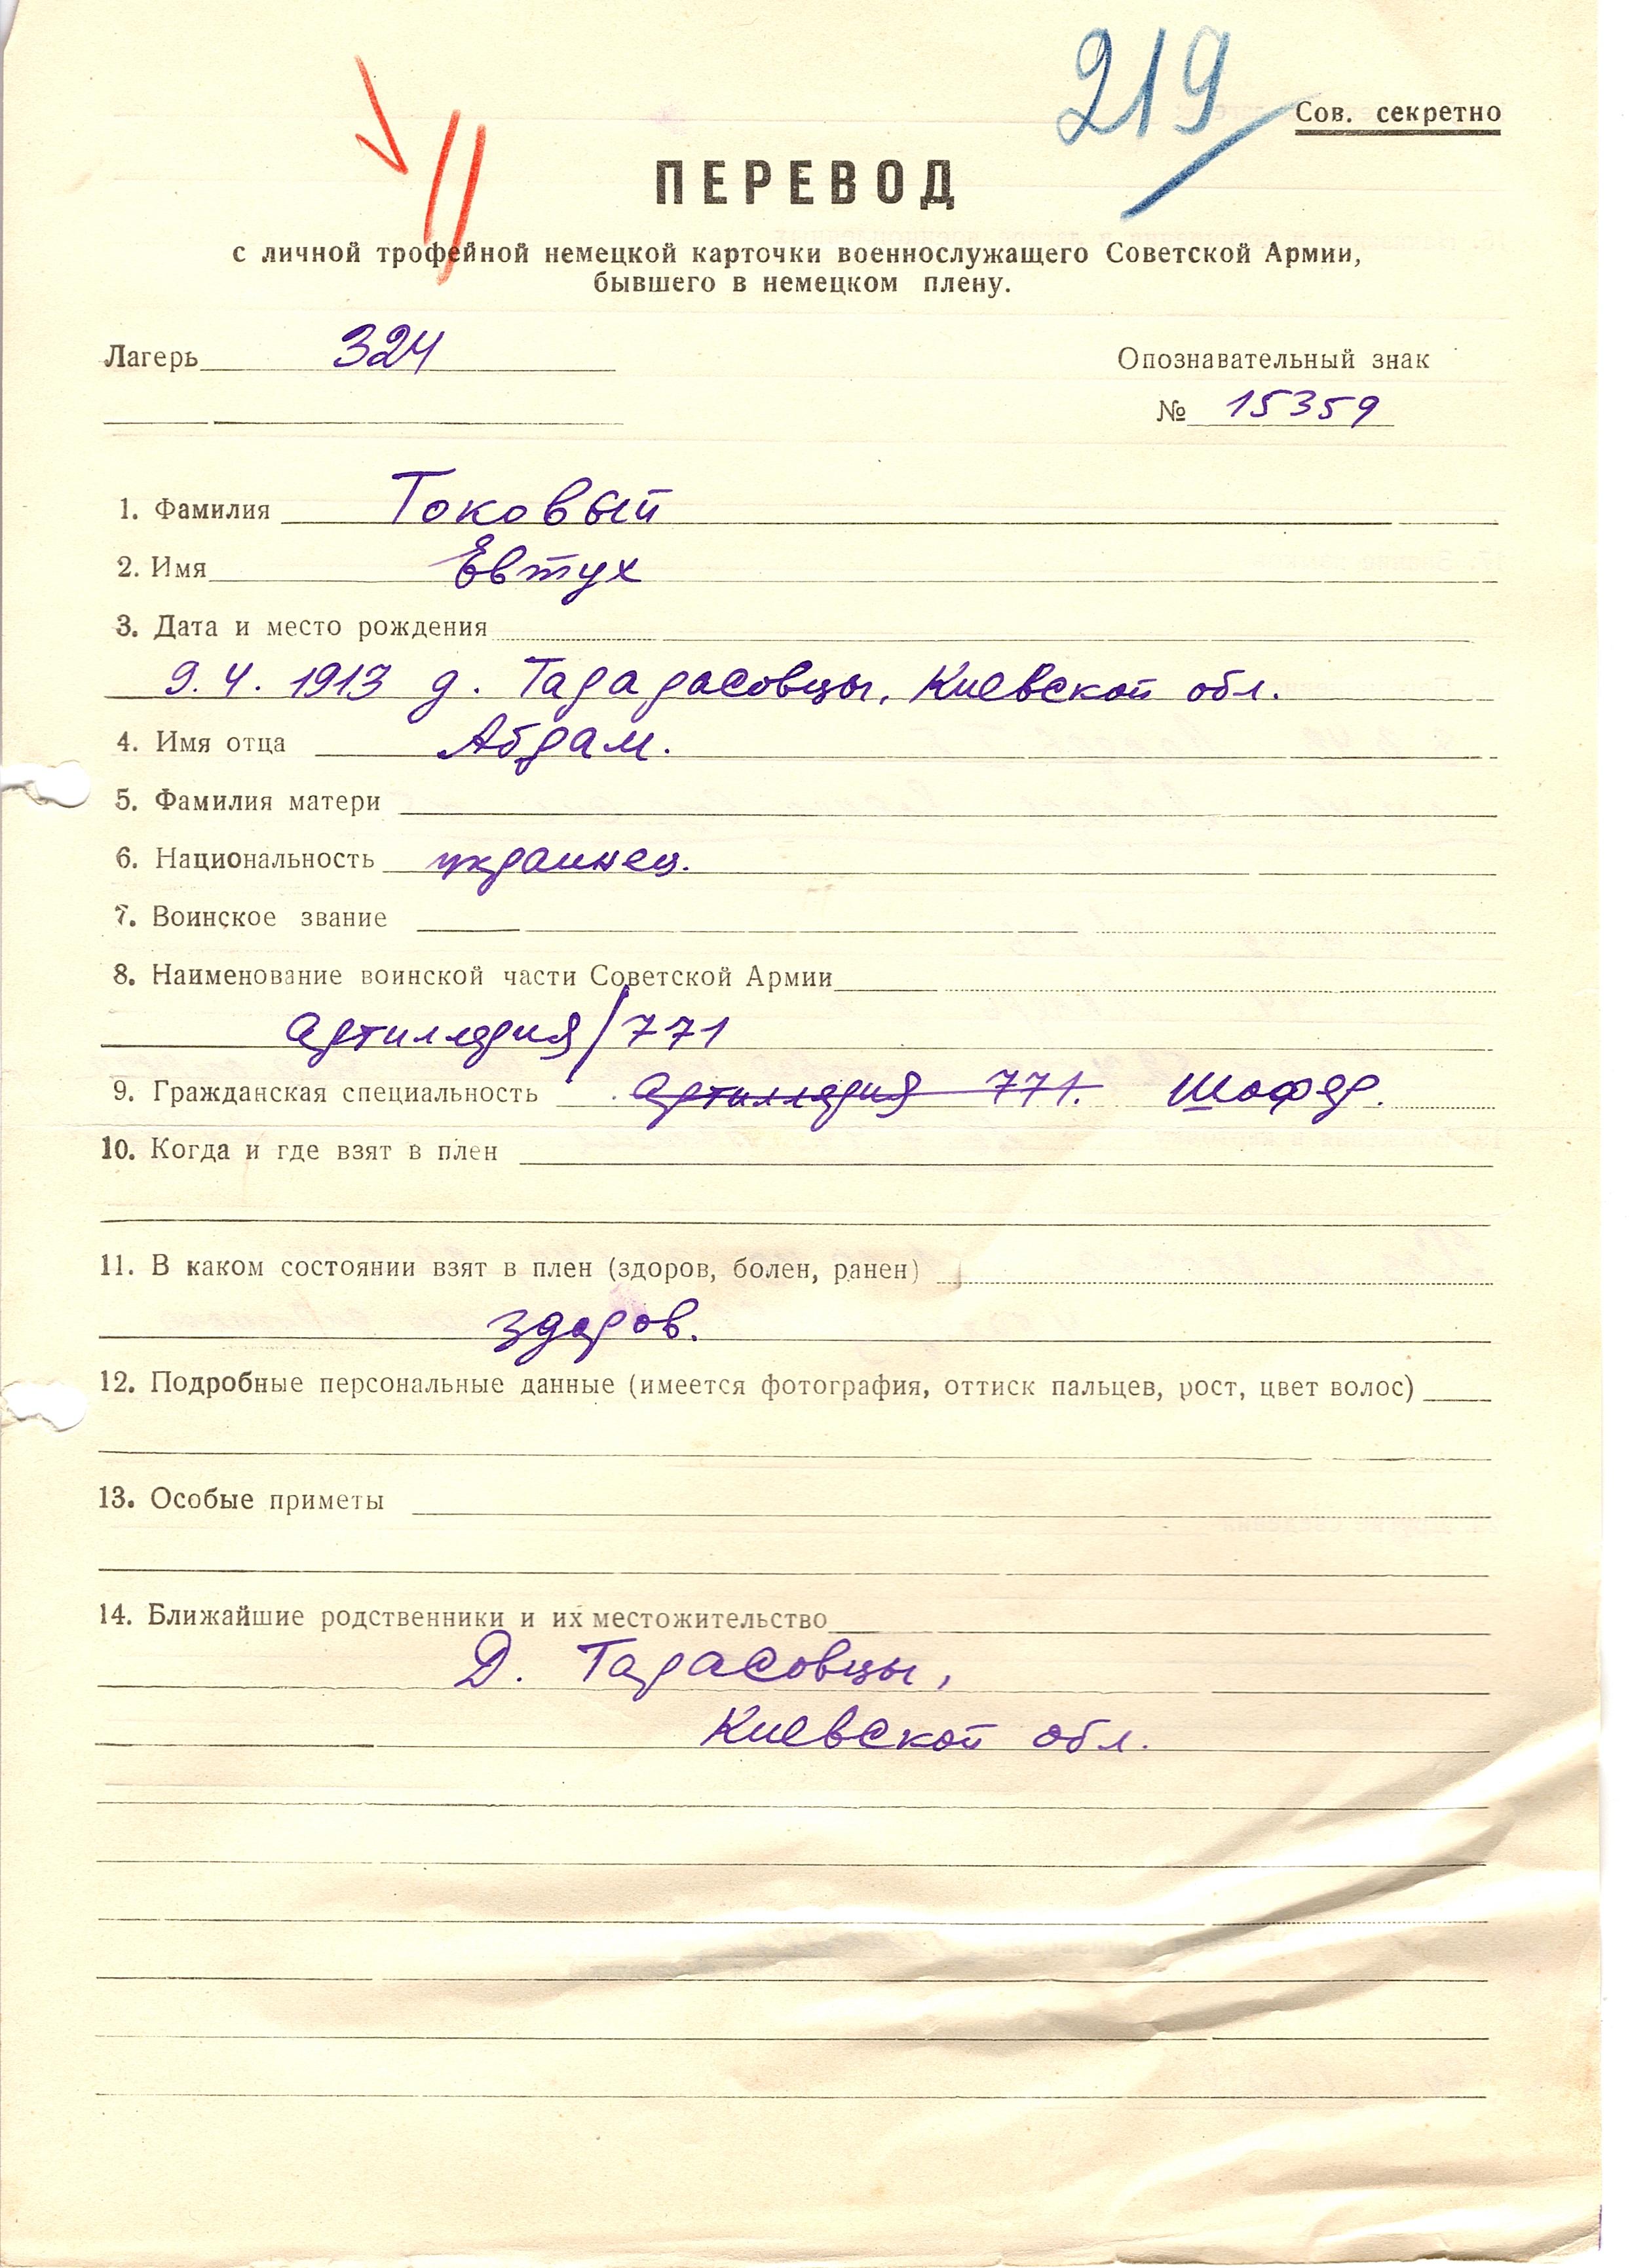 219
Сов. секретно
ПЕРЕВОД
с личной трофейной немецкой карточки военнослужащего Советской Армии,
бывшего в немецком плену.
Лагерь 324
Опознавательный знак
№ 15359
1. Фамилия Токовый
2. Имя Евтух
3. Дата и место рождения
9.4.1913 д. Тарарасовцы, Киевской обл.
4. Имя отца Абрам.
5. Фамилия матери
6. Национальность украинец.
7. Воинское звание
8. Наименование воинской части Советской Армии
артиллерия/771
9. Гражданская специальность артиллерия 771. Шофер.
10. Когда и где взят в плен
11. В каком состоянии взят в плен (здоров, болен, ранен)
здоров.
12. Подробные персональные данные (имеется фотография, оттиск пальцев, рост, цвет волос)
13. Особые приметы
14. Ближайшие родственники и их местожительство
Д. Тарасовцы,
Киевской обл.